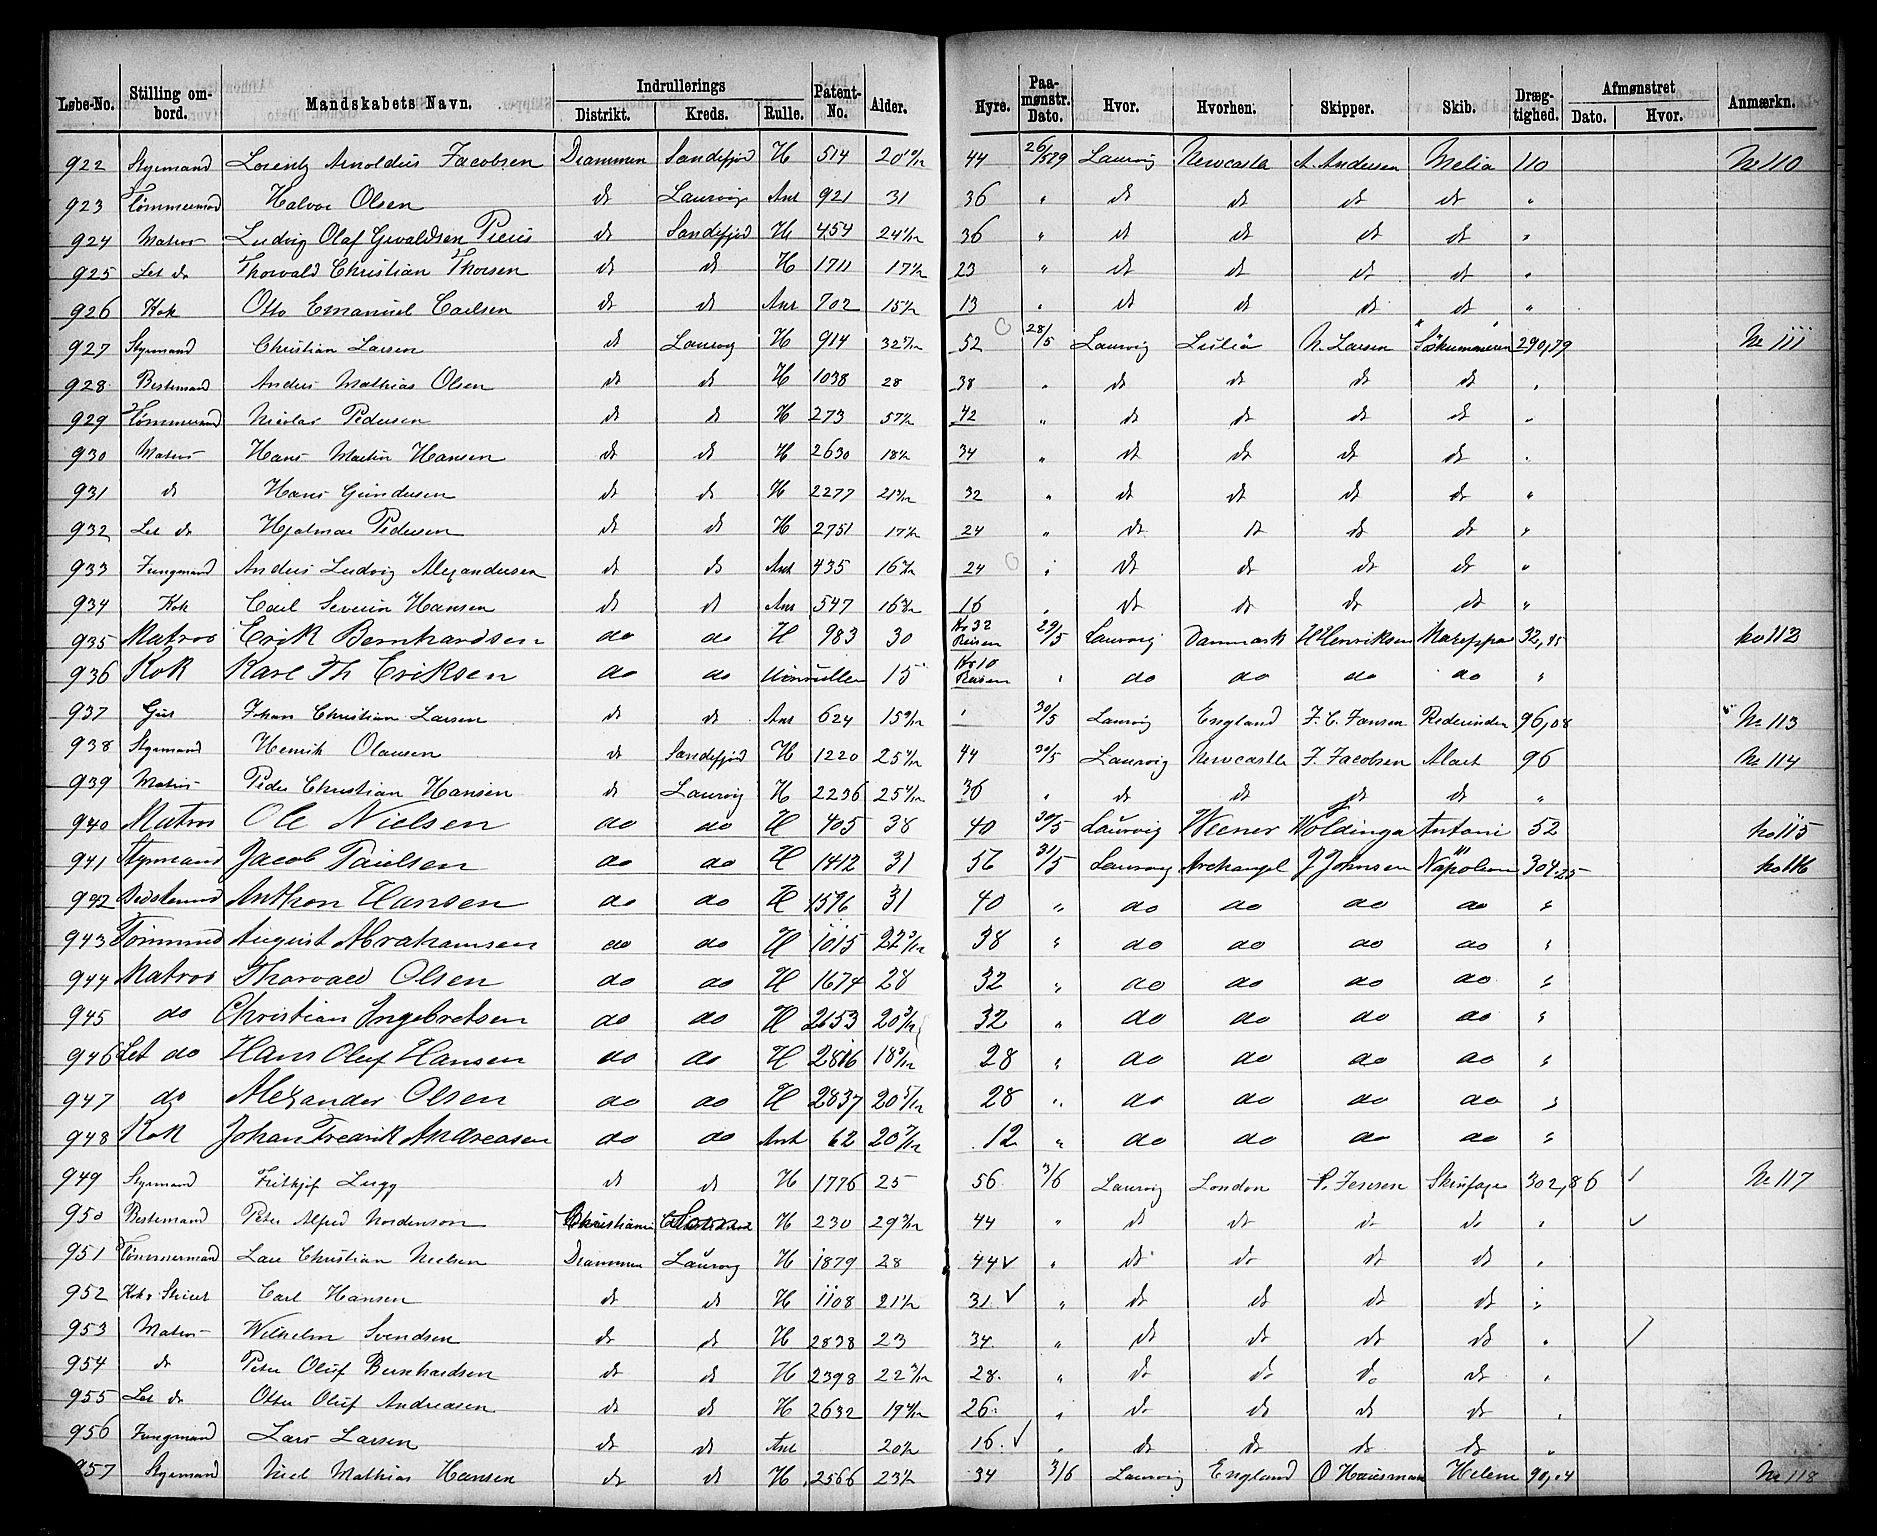 Løbe-No. Stilling om-bord. Mandskabets Navn. Indrullerings Distrikt. Kreds. Rulle. Patent-No. Alder. Hyre. Paa-mønstr. Dato. Hvor. Hvorhen. Skipper. Skib. Dræg-tighed. Afmønstret Dato. Hvor. Anmærkn.
922 Styrmand Lorentz Arnoldus Jacobsen Drammen Sandefjord H 514 20 44 26/5 79 Laurvig Newcastle A. Andersen Melia 110 No 110
923 Tømmermand Halvor Olsen dt Laurvig Ant 921 31 36 " dt dt dt dt "
924 Matros Ludvig Olaf Gevaldsen dt Sandefjord H 454 36 " dt dt dt dt "
925 Let do Thorvald Christian Thorsen dt dt H 1711 23 " dt dt dt dt "
926 Kok Otto Emanuel Carlsen dt dt Ant 702 13 " dt dt dt dt "
927 Styrmand Christian Larsen dt Laurvig H 914 52 28/5 Laurvig Luleå N. Larsen 290,79 No 111
928 Bestemand Andreas Mathias Olsen dt dt H 1038 28 38 " dt dt dt dt "
929 Tømmermand Nicolai Pedersen dt dt H 273 42 " dt dt dt dt "
930 Matros Hans Martin Hansen dt dt H 2630 34 " dt dt dt dt "
931 dt Hans Gundersen dt dt H 2277 32 " dt dt dt dt "
932 Let do Hjalmar Pedersen dt dt H 2751 24 " dt dt dt dt "
933 Jungmand Anders Ludvig Alexandersen dt dt Ant 435 24 " dt dt dt dt "
934 Kok Carl Severin Hansen dt dt Ant 547 16 " dt dt dt dt "
935 Matros Erik Bernhardsen do do H 983 30 Kr 32 Reisen 29/5 Laurvig Danmark H Henriksen 32,45 No 112
936 Kok Karl Th Eriksen do do 15 Kr 10 Reisen " do do do do "
937 Gut Johan Christian Larsen dt dt Ant 624 " 30/5 Laurvig England J. C. Jansen 96,08 No 113
938 Styrmand Henrik Olausen dt Sandefjord H 1220 44 30/5 Laurvig Newcastle J. Jacobsen Alart 96 No 114
939 Matros Peder Christian Hansen dt Laurvig H 2236 36 " dt dt dt dt "
940 Matros Ole Nielsen do do H 405 38 40 30/5 Laurvig Woldinga Antoni 52 No 115
941 Styrmand Jacob Paulsen do do H 1412 31 56 31/5 Laurvig Archangel J Johnsen Napoleon 304,25 No 116
942 Bedstemand Anthon Hansen do do H 1596 31 40 " do do do do "
943 Tømmrmd August Abrahamsen do do H 1015 22 38 " do do do do "
944 Matros Thorvald Olsen do do H 1674 28 32 " do do do do "
945 do Christian Ingebretsen do do H 2653 20 3/12 32 " do do do do "
946 Let do Hans Oluf Hansen do do H 2816 18 28 " do do do do "
947 do Alexander Olsen do do H 2837 20 5/12 28 " do do do do "
948 Kok Johan Fredrik Andreasen do do Ant 62 20 7/12 12 " do do do do "
949 Styrmand Frithjof Lugg dt dt H 1776 25 56 3/6 Laurvig London P. Jensen 302,86 No 117
950 Bestemand Peter Alfred Nordenson Christiania H 230 44 " dt dt do do "
951 Tømmermand Lars Christian Nielsen Drammen Laurvig H 1879 28 44 " dt dt dt dt "
952 Carl Hansen dt dt H 1108 31 " dt dt dt dt "
953 Matros Wilhelm Svendsen dt dt H 2838 23 34 " dt dt dt dt "
954 dt Peter Oluf Bernhardsen dt dt H 2398 28 " dt dt do dt "
955 Let do Otto Oluf Andreasen dt dt H 2632 26 " do dt dt dt "
956 Jungmand Lars Larsen dt dt Ant 16 " dt dt dt dt "
957 Styrmand Niels Mathias Hansen dt dt H 2566 34 3/6 Laurvig England O Hausmann Helene 90,04 No 118